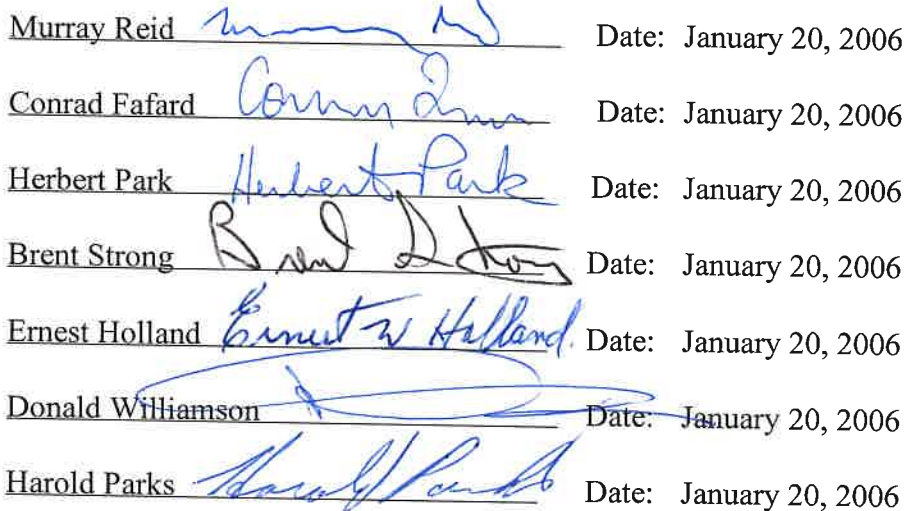 Murray Reid Date: January 20, 2006
Conrad Fafard Date: January 20, 2006
Herbert Park Herbert Park Date: January 20, 2006
Brent Strong Brent Strong Date: January 20, 2006
Ernest Holland Ernest W Holland. Date: January 20, 2006
Donald Williamson Date: January 20, 2006
Harold Parks Harold Parks Date: January 20, 2006